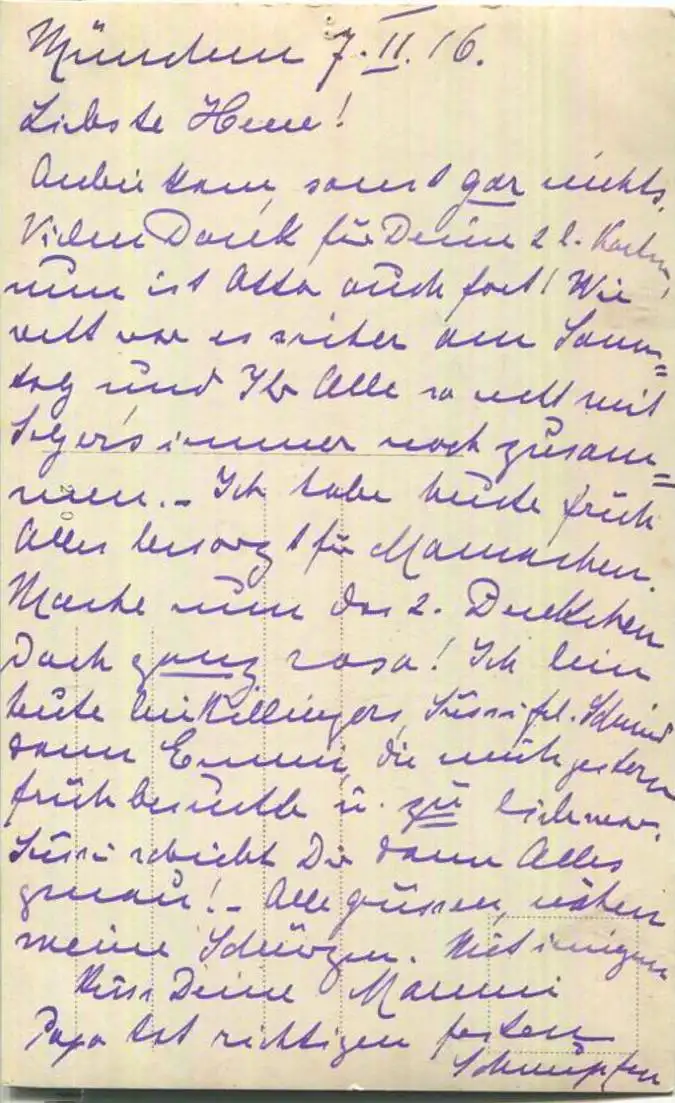 München 7. II. 16.
Liebste Hene!
Anbei kam, sonst gar nichts.
Vielen Dank für Deine 2 l. Karten,
nun ist Otto auch fort! Wie
nett war es sicher am Sonn=
tag und Ihr Alle so nett mit
Solger's immer noch zusam=
men. – Ich habe heute früh
Alles besorgt für Mamachen.
Mache nun das 2. Deckchen
Doch ganz rosa! Ich bin
heute bei Killingers, Sussi, frl. Schmid
dann Emmi, die mich gestern
früh besuchte u. zu lieb war.
Sussi schreibt Dir dann Alles
genau! – Alle grüssen, nähen
meine Schürzen. Mit innigem
Kuss Deine Mammi
Papa hat richtigen festen
Schnupfen